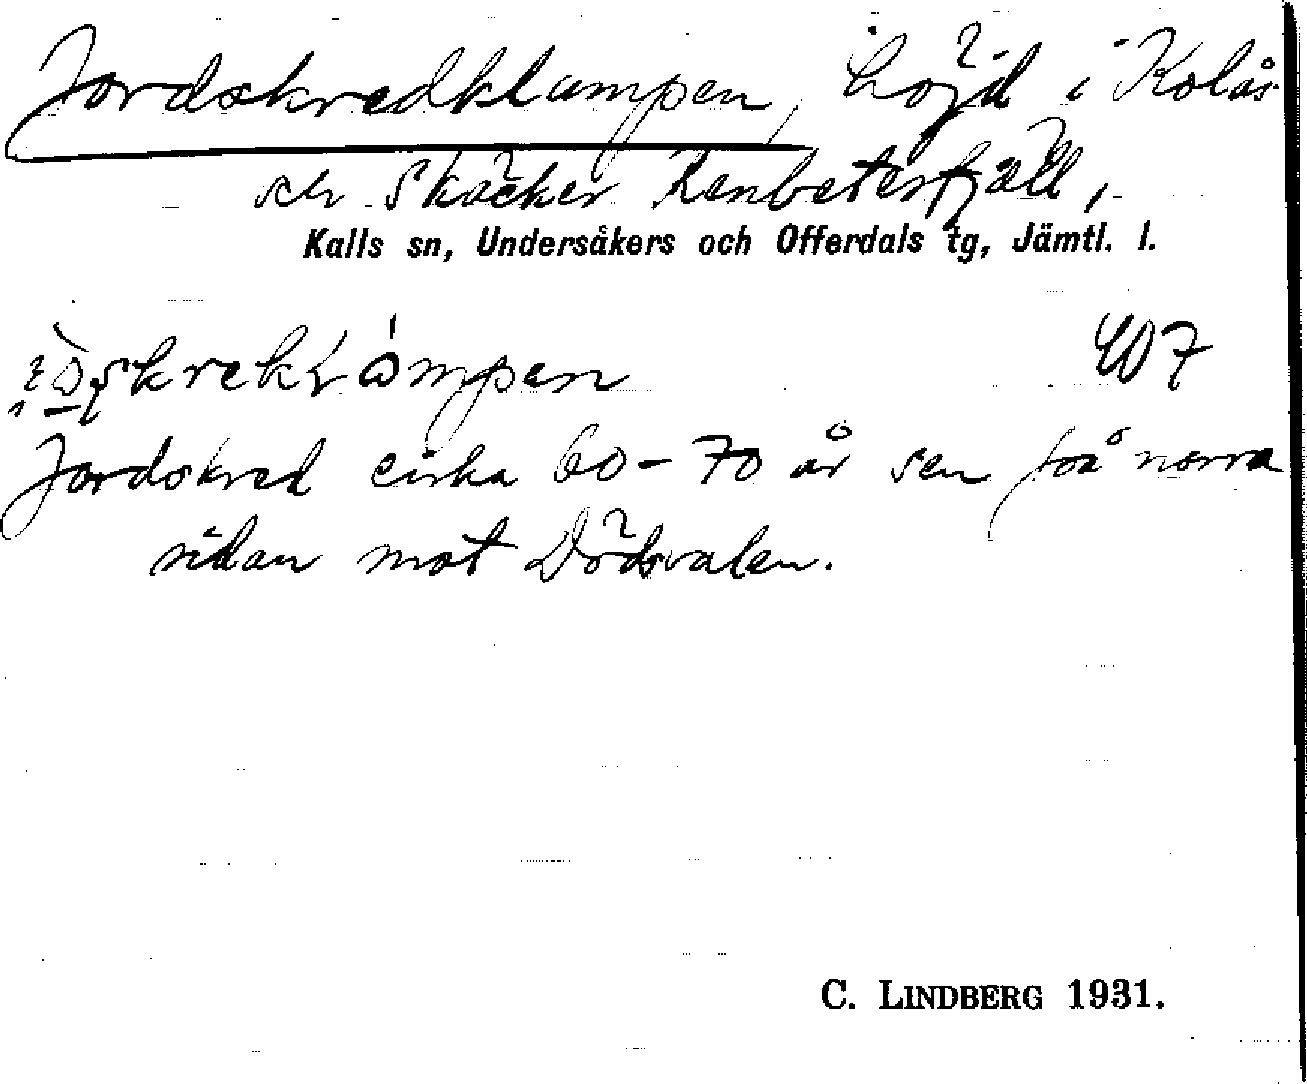 Jordskredklumpen, höjd i Kolås
och Skäcker Renbetesfjäll,
Kalls sn, Undersåkers och Offerdals tg, Jämtl. l.
407
Jordskred cirka 60-70 år sen på norra
sidan mot Dödsvalen.
C. LINDBERG 1931.